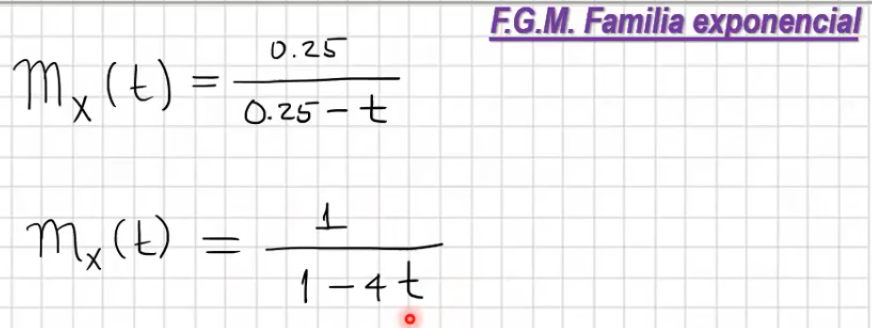 F.G.M. Familia exponencial
m_x(t) = 0.25 / (0.25 - t)
m_x(t) = 1 / (1 - 4t)